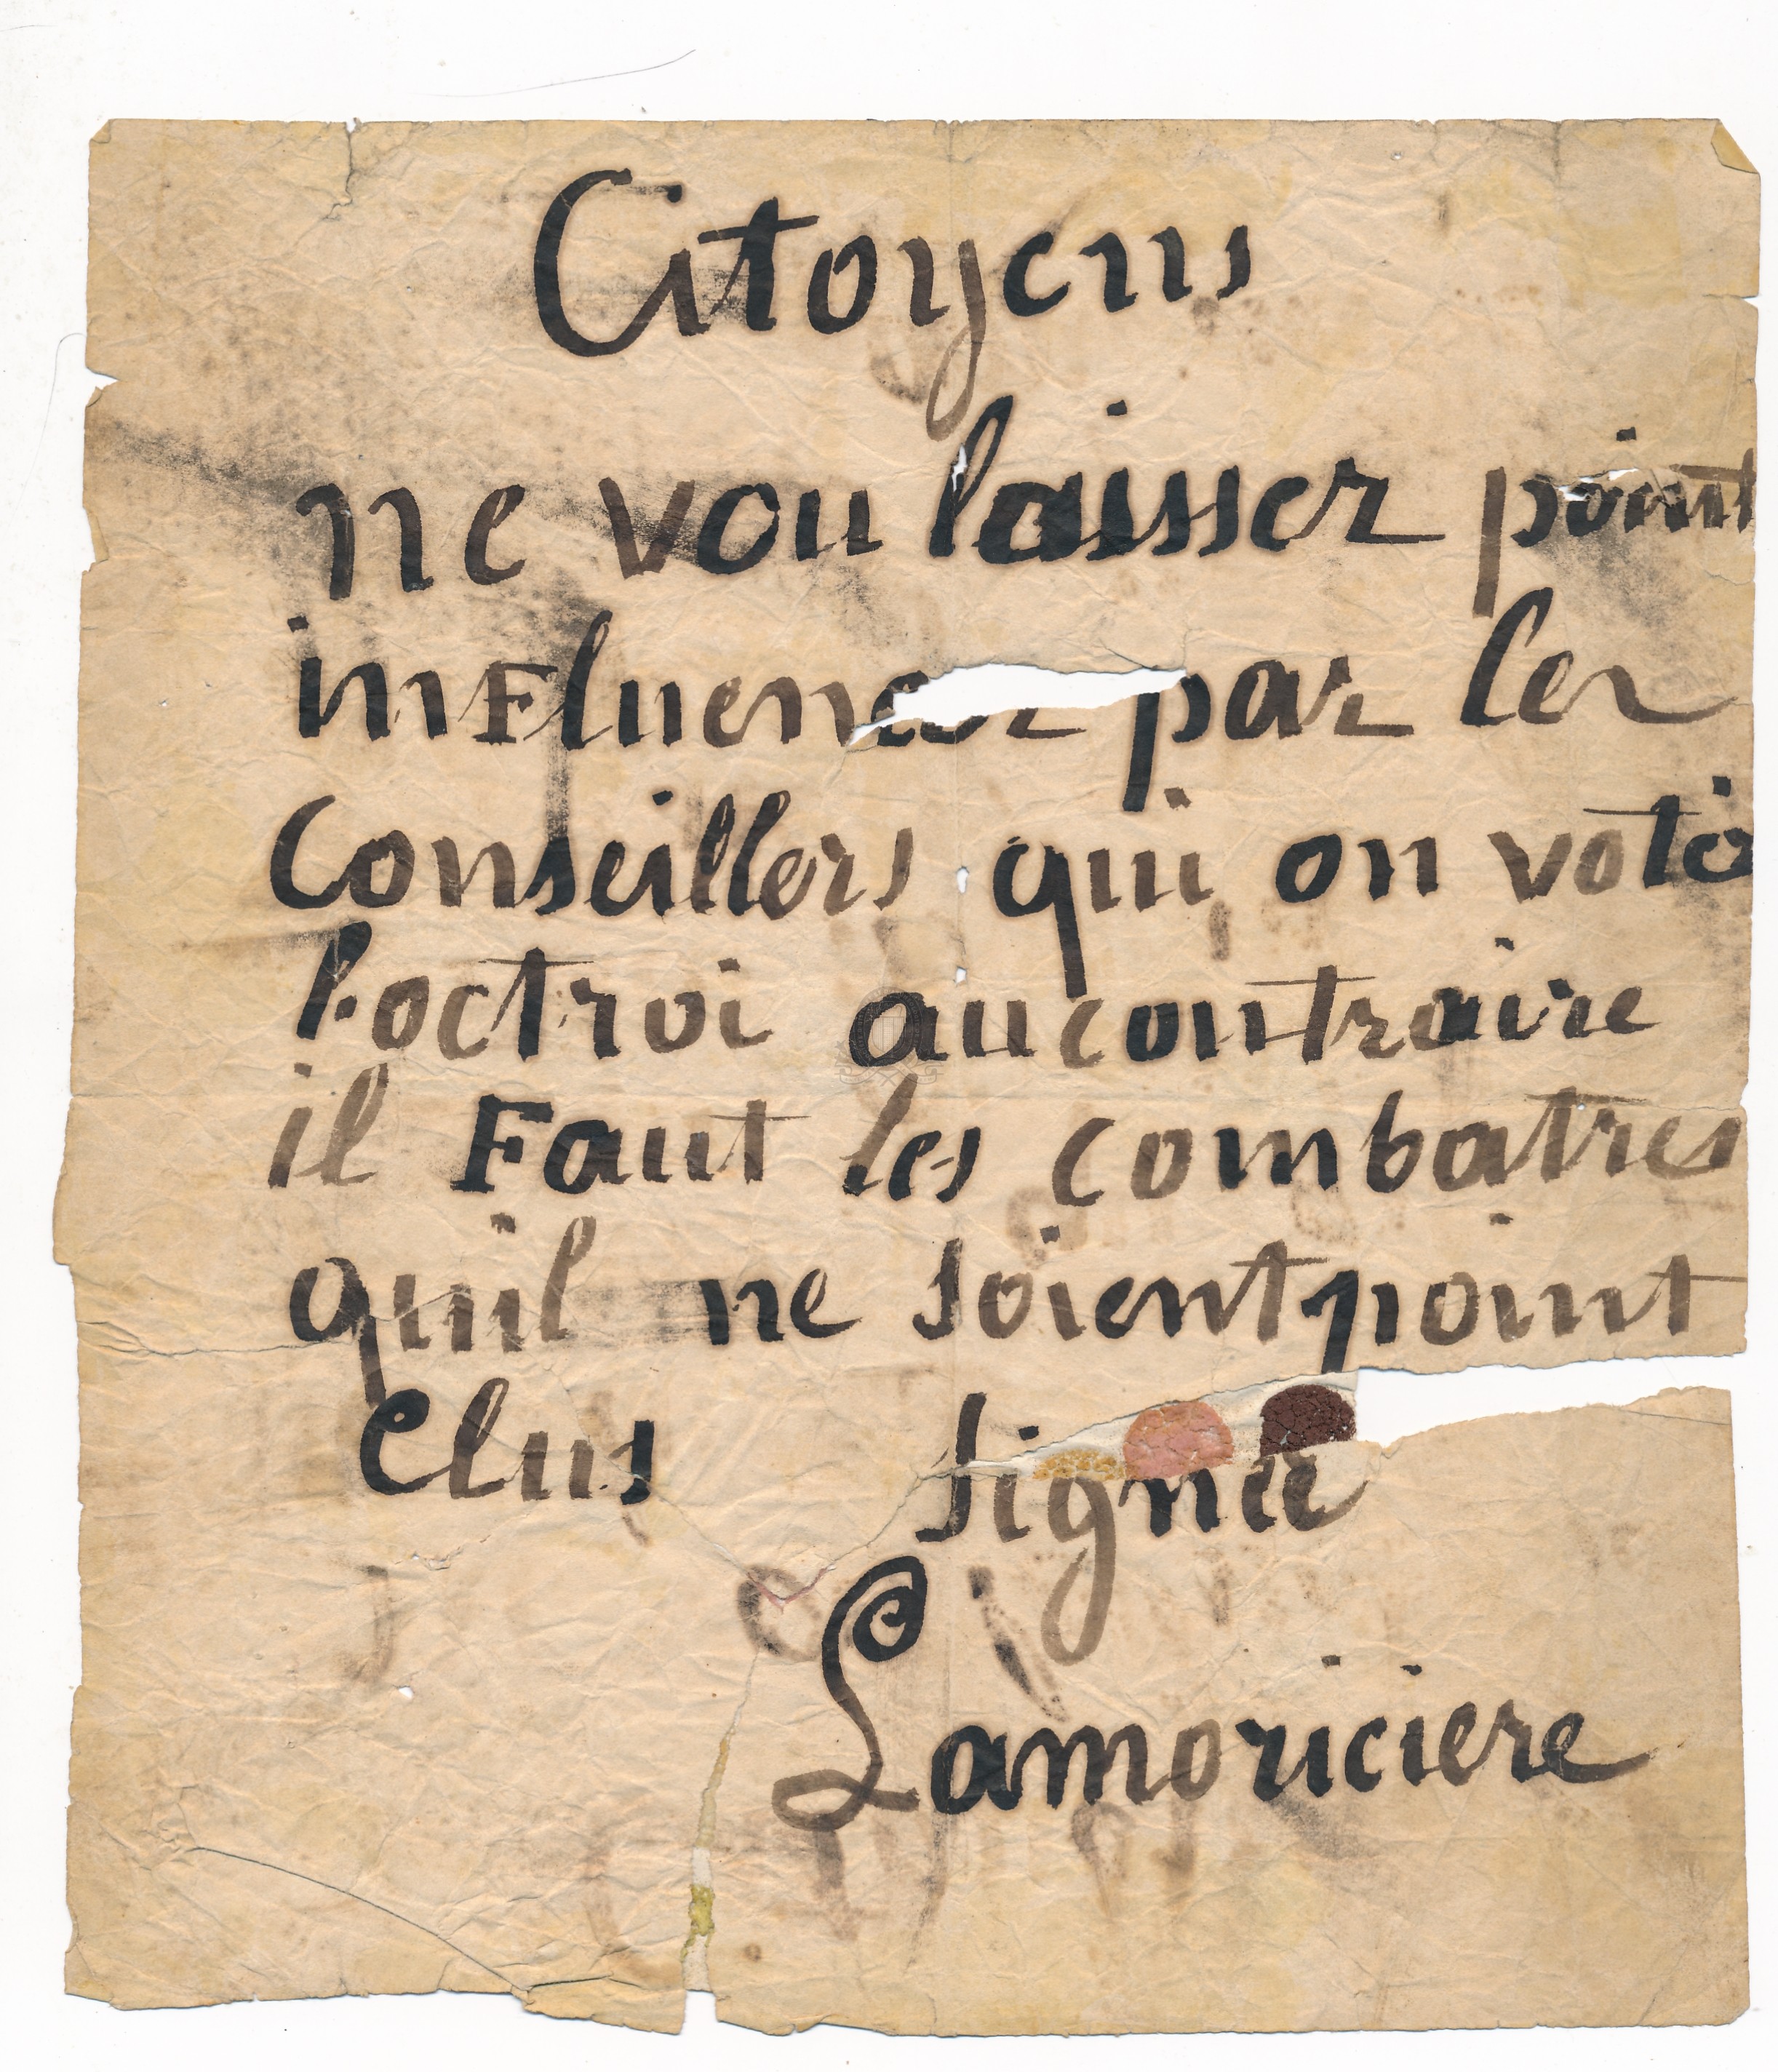 Citoyens
ne vou laisser point
influencer par les
Conseillers qui on voté
l'octroi aucontraire
il Faut les combatres
quil ne soient point
Elus signé
Lamoriciere